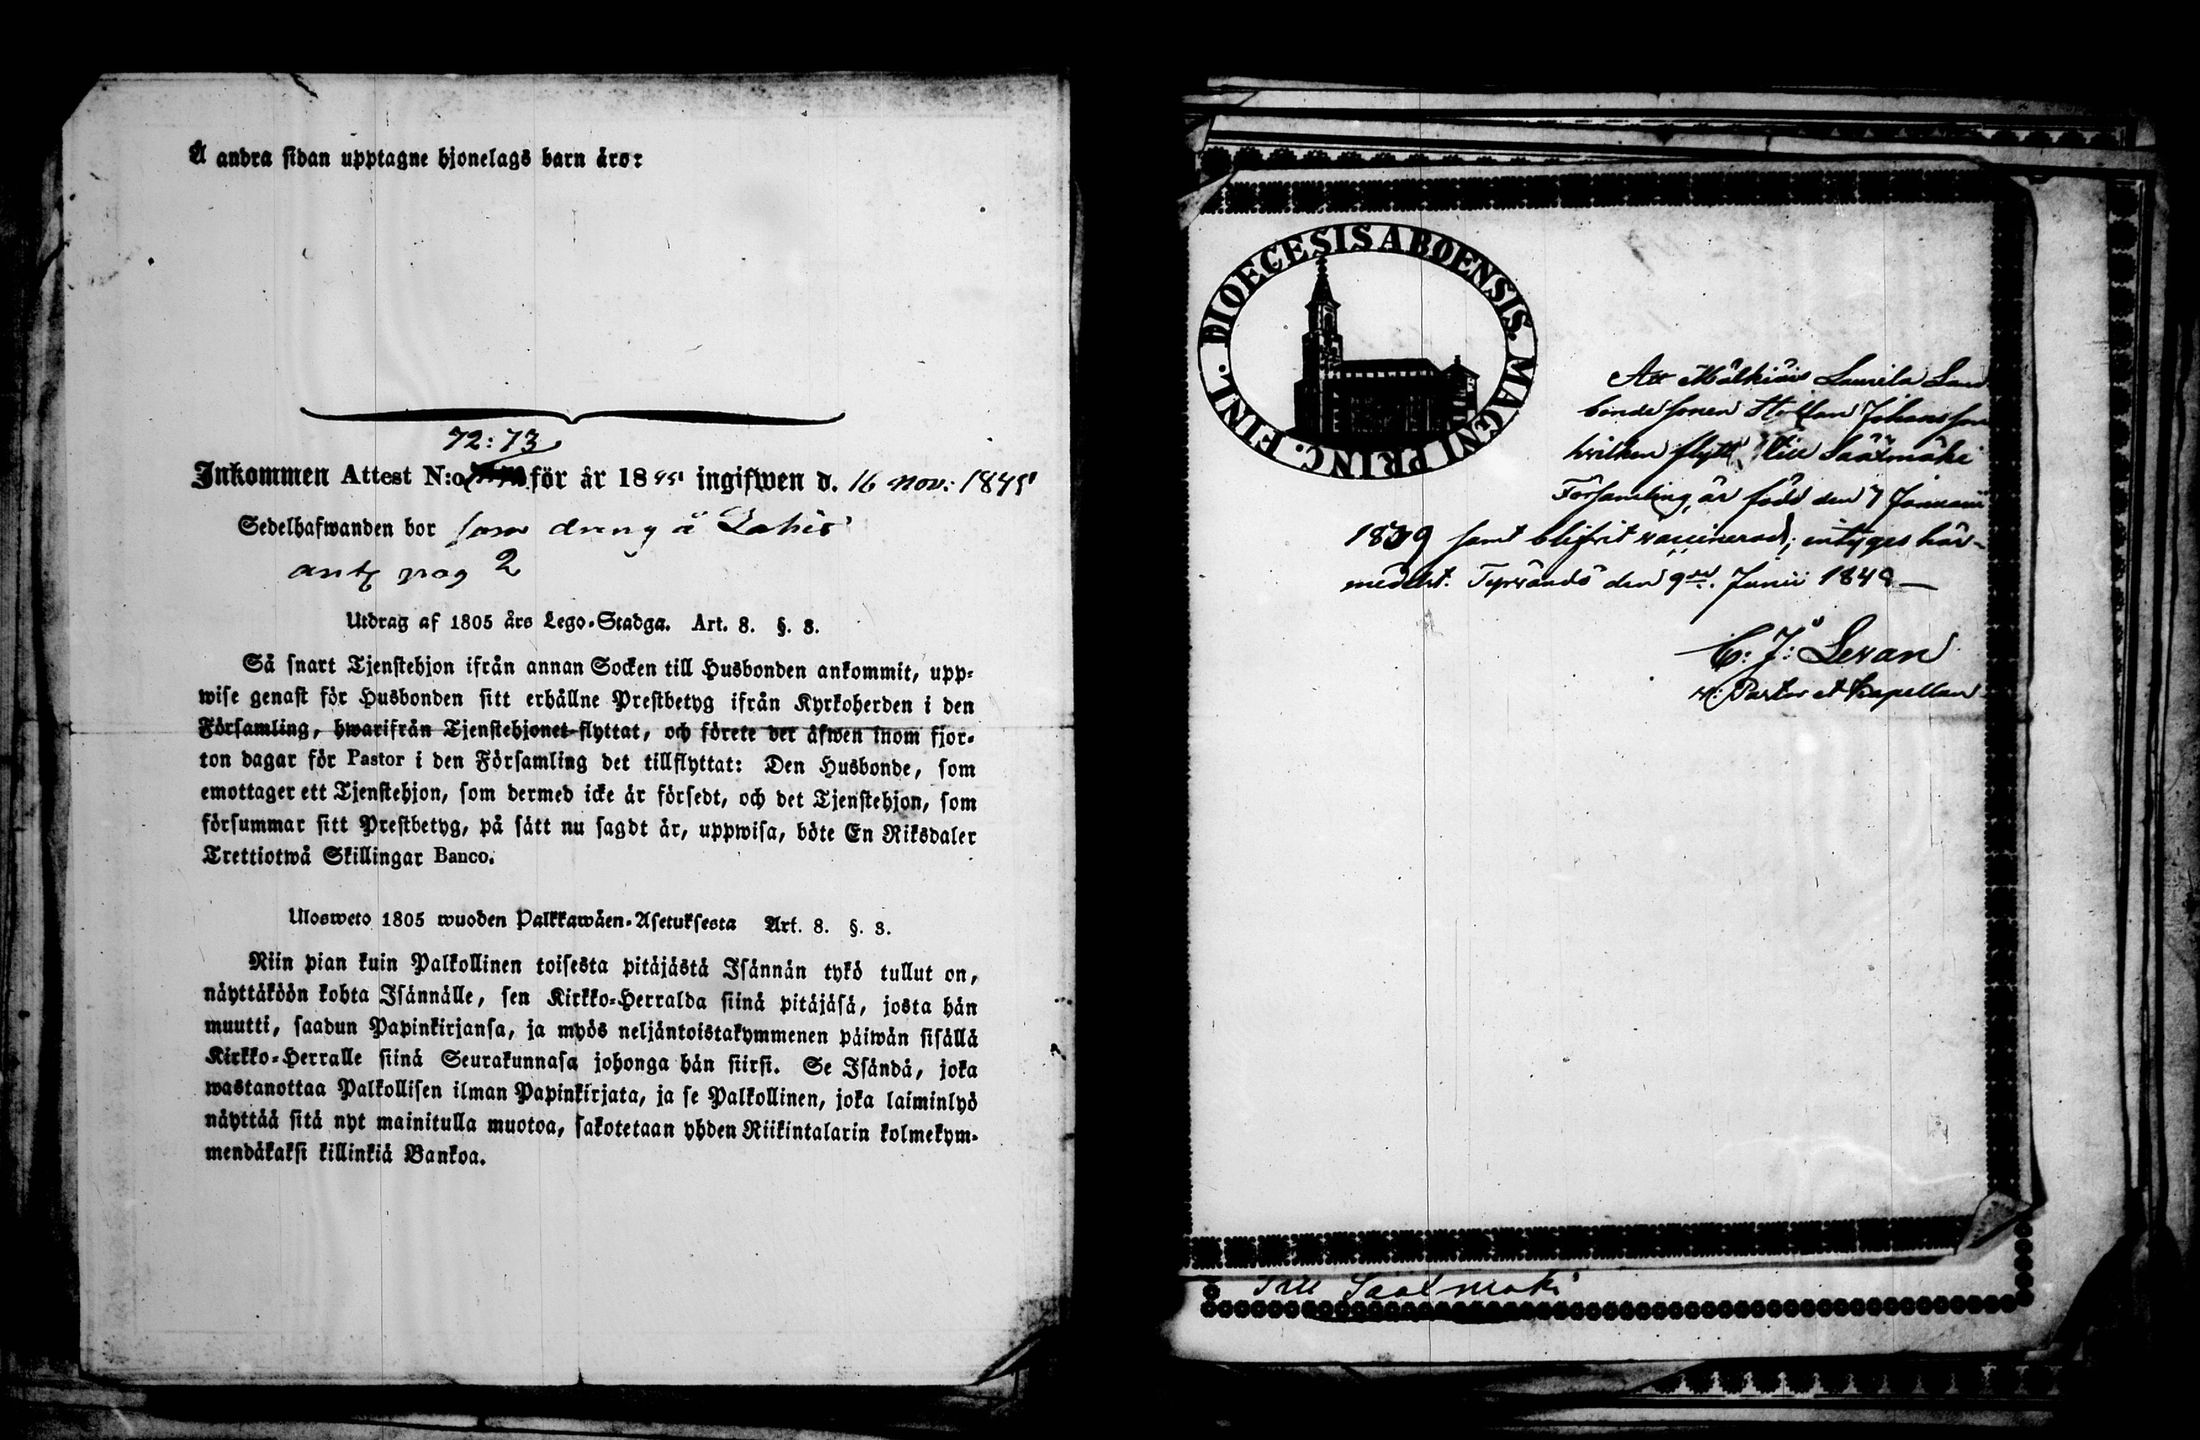 Å andra sidan upptagne hjonelags barn äro:
72:73
Inkommen Attest N:o för år 1845 ingifwen d. 16 nov: 1845
Sedelhafwanden bor som dreng å Lahis
ant pag 2
Utdrag af 1805 års Lego-Stadga. Art. 8. §. 3.
Så snart Tjenstehjon ifrån annan Socken till Husbonden ankommit, upp-
wise genast för Husbonden sitt erhållne Prestbetyg ifrån Kyrkoherden i den
Församling, hwarifrån Tjenstehjonet flyttat, och förete det äfwen inom fjor-
ton dagar för Pastor i den Församling det tillflyttat: Den Husbonde, som
emottager ett Tjenstehjon, som dermed icke är försedt, och det Tjenstehjon, som
försummar sitt Prestbetyg, på sätt nu sagdt är, uppwisa, böte En Riksdaler
Trettiotwå Skillingar Banco.
Ulosweto 1805 wuoden Palkkawäen-Asetuksesta Art. 8. §. 3.
Niin pian kuin Palkollinen toisesta pitäjästä Isännän tykö tullut on,
näyttäköön kohta Isännälle, sen Kirkko-Herralda siinä pitäjäsä, josta hän
muutti, saadun Papinkirjansa, ja myös neljäntoistakymmenen päiwän sisällä
Kirkko-Herralle siinä Seurakunnasa johonga hän siirsi. Se Isändä, joka
wastanottaa Palkollisen ilman Papinkirjata, ja se Palkollinen, joka laiminlyö
näyttää sitä nyt mainitulla muotoa, sakotetaan yhden Riikintalarin kolmekym-
mendäkaksi killinkiä Bankoa.
DIOECESIS ABOENSIS. MAGNI PRINC. FINL.
Att Laurila Lan
bonde sonen Johansson
hvilken flytt till Sääxmäki
Församling, är född den 7 Januarii
1809 samt blifvit vaccinerad; intyges här-
medelst. Tyrvändö den 9de Junii 1848
C: J: Levan
v: Pastor et Kapellan
Till Sääxmäki